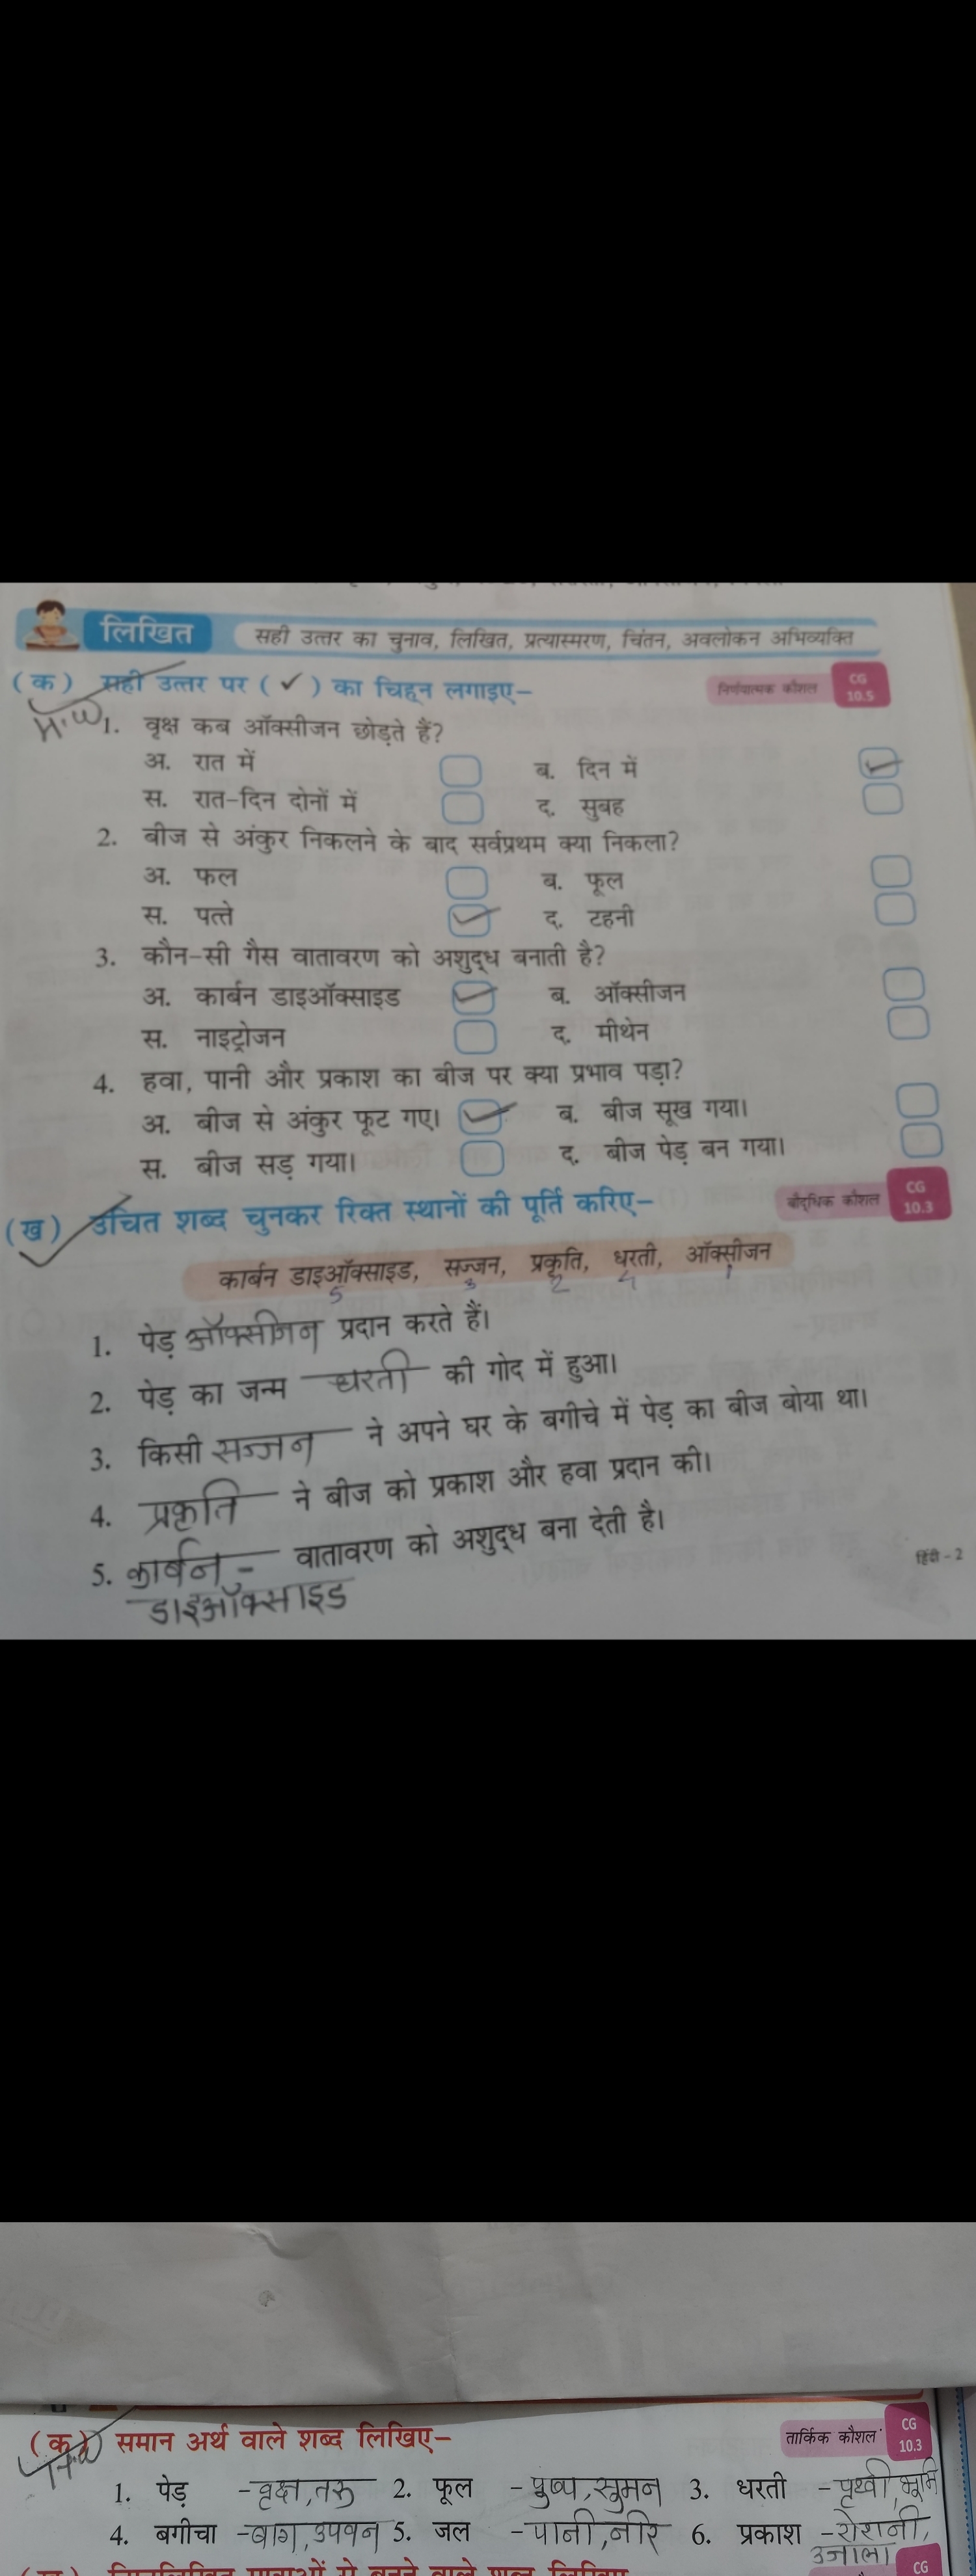 लिखित
सही उत्तर का चुनाव, लिखित, प्रत्यास्मरण, चिंतन, अवलोकन अभिव्यक्ति
(क) सही उत्तर पर (✓) का चिह्न लगाइए–
निर्णयात्मक कौशल CG 10.5
H.W
1. वृक्ष कब ऑक्सीजन छोड़ते हैं?
अ. रात में ब. दिन में ✓
स. रात-दिन दोनों में द. सुबह
2. बीज से अंकुर निकलने के बाद सर्वप्रथम क्या निकला?
अ. फल ब. फूल
स. पत्ते ✓ द. टहनी
3. कौन-सी गैस वातावरण को अशुद्ध बनाती है?
अ. कार्बन डाइऑक्साइड ✓ ब. ऑक्सीजन
स. नाइट्रोजन द. मीथेन
4. हवा, पानी और प्रकाश का बीज पर क्या प्रभाव पड़ा?
अ. बीज से अंकुर फूट गए। ✓ ब. बीज सूख गया।
स. बीज सड़ गया। द. बीज पेड़ बन गया।
(ख) उचित शब्द चुनकर रिक्त स्थानों की पूर्ति करिए–
बौद्धिक कौशल CG 10.3
कार्बन डाइऑक्साइड, सज्जन, प्रकृति, धरती, ऑक्सीजन
5 3 2 4 1
1. पेड़ ऑक्सीजन प्रदान करते हैं।
2. पेड़ का जन्म धरती की गोद में हुआ।
3. किसी सज्जन ने अपने घर के बगीचे में पेड़ का बीज बोया था।
4. प्रकृति ने बीज को प्रकाश और हवा प्रदान की।
5. कार्बन - वातावरण को अशुद्ध बना देती है।
डाइऑक्साइड
हिंदी - 2
(क) समान अर्थ वाले शब्द लिखिए–
तार्किक कौशल CG 10.3
1. पेड़ - वृक्ष, तरु 2. फूल - पुष्प, सुमन 3. धरती - पृथ्वी, भूमि
4. बगीचा - बाग, उपवन 5. जल - पानी, नीर 6. प्रकाश - रोशनी,
उजाला
CG